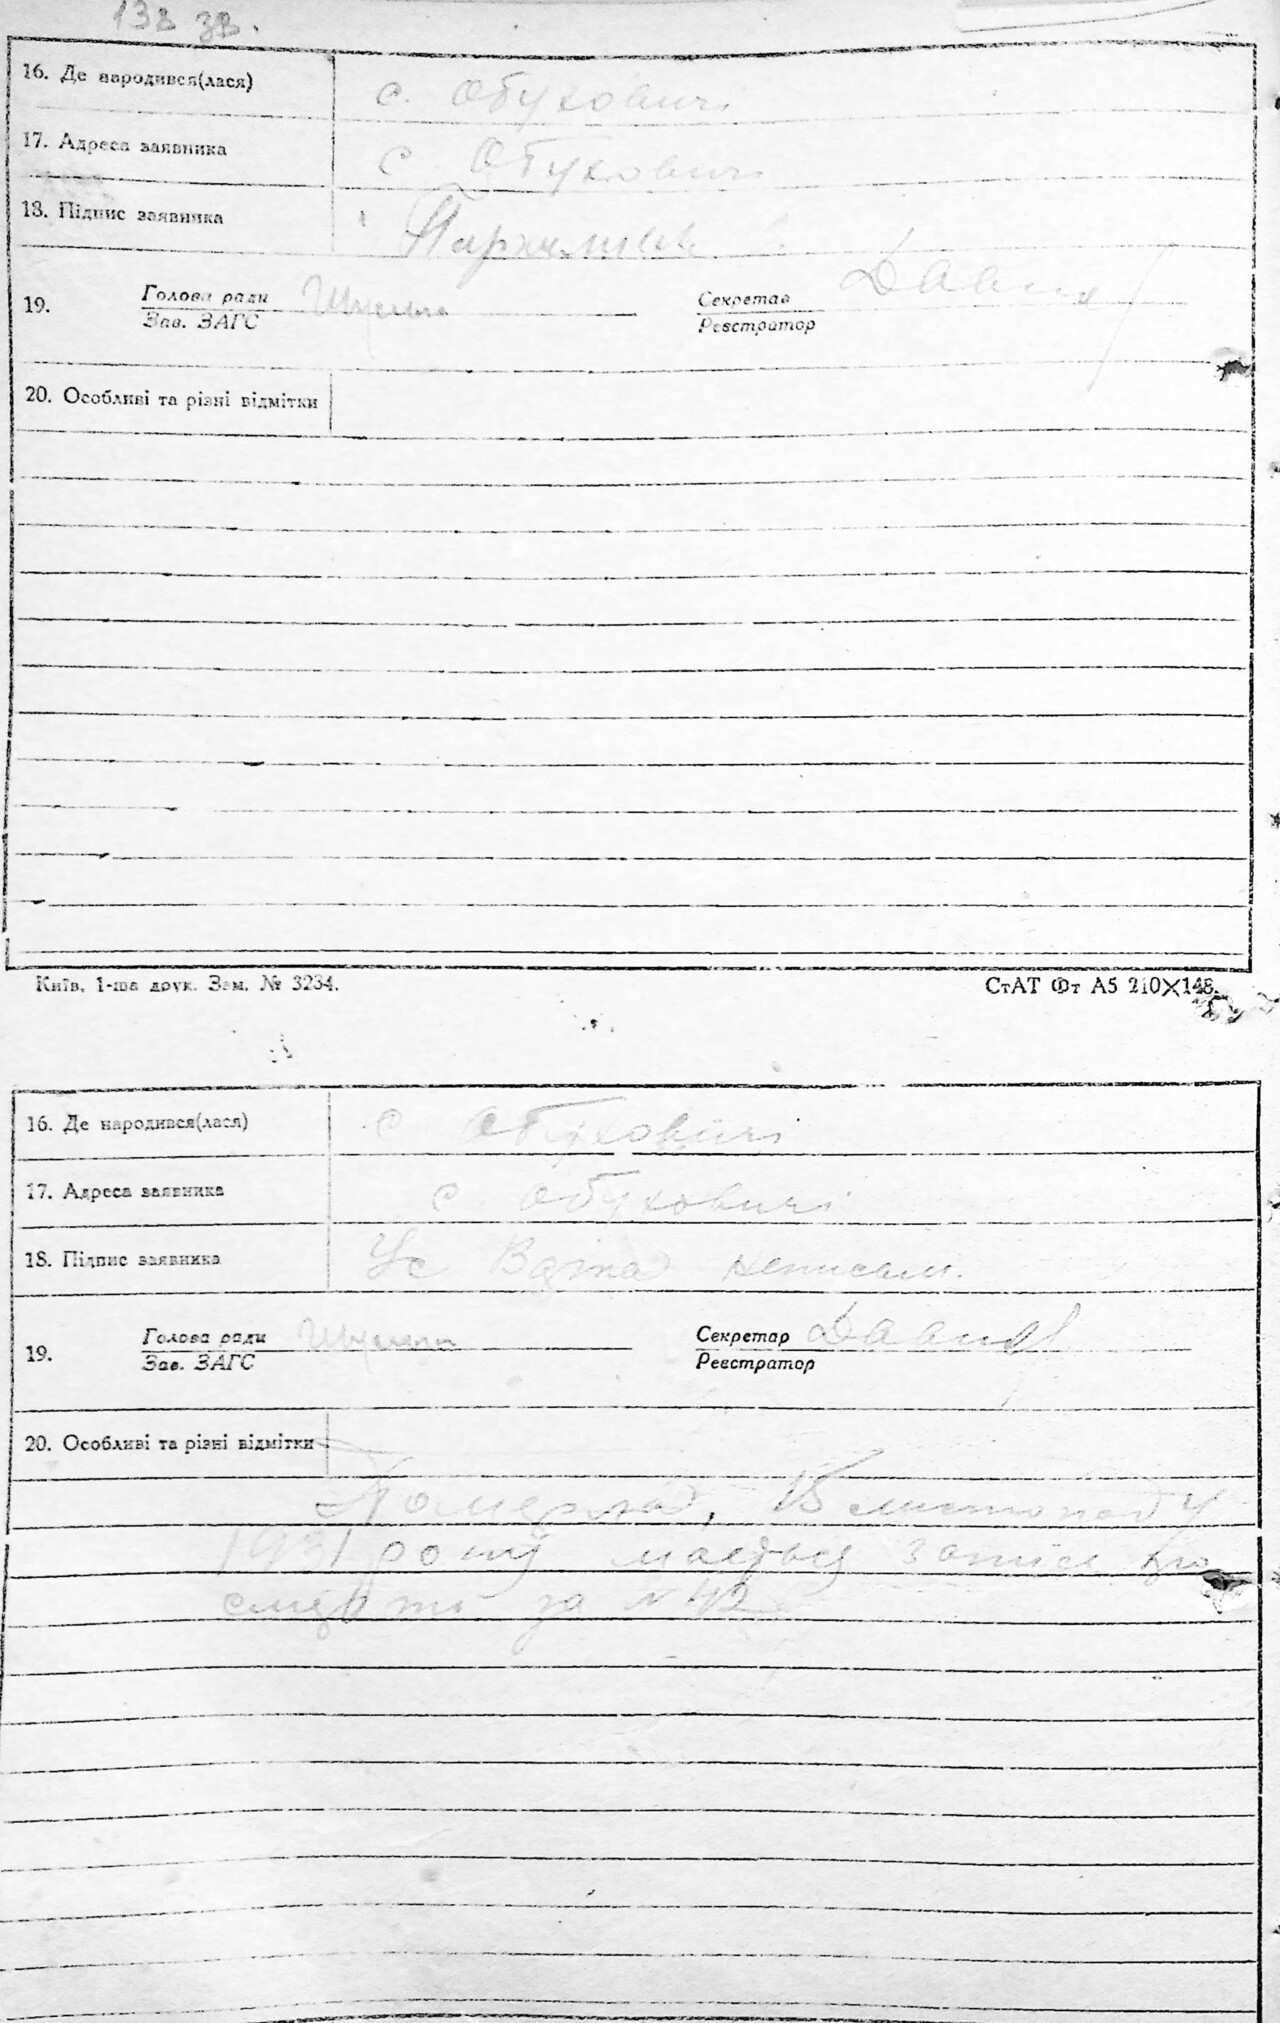 13в зв.
16. Де народився(лася) с. Обуховичі
17. Адреса заявника с Обуховичі
18. Підпис заявника
19. Голова ради Секретар
Зав. ЗАГС Реєстратор
20. Особливі та різні відмітки
Київ, 1-ша друк. Зам. № 3234. СтАТ Фт А5 210×148.
16. Де народився(лася) с Обуховичі
17. Адреса заявника с Обуховичі
18. Підпис заявника Ус
19. Голова ради Секретар
Зав. ЗАГС Реєстратор
20. Особливі та різні відмітки
Померла, 15 листопаду
1931 року мається запис про
смерть за № 42